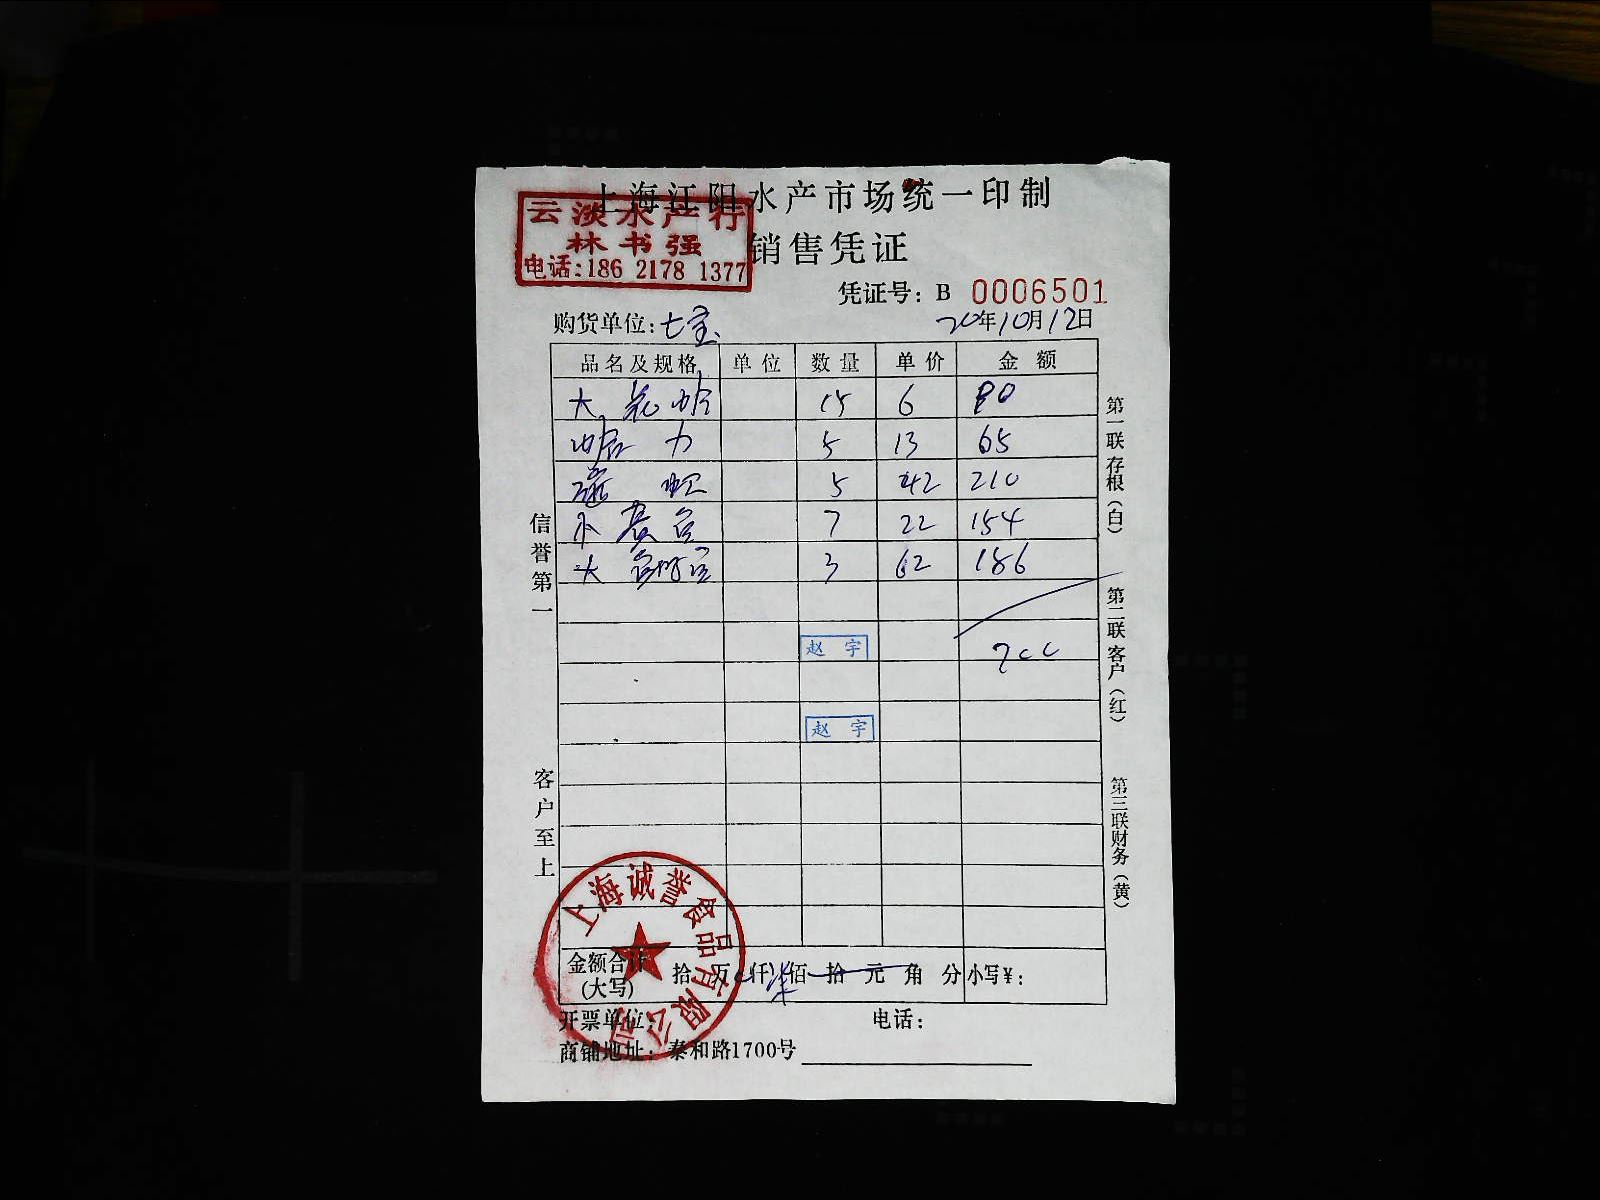 上海江阳水产市场统一印制
云淡水产行
林书强
电话:186 2178 1377
销售凭证
凭证号: B 0006501
购货单位:七宝 20年10月12日
品名及规格 单位 数量 单价 金额
大花哈 15 6 90
哈力 5 13 65
5 42 210
小 7 22 154
大 3 62 186
赵宇 700
赵宇
金额合计(大写) 拾万仟柒佰拾元角分 小写¥:
开票单位: 电话:
商铺地址: 泰和路1700号
上海诚誉食品有限公司
信誉第一
客户至上
第一联存根(白)
第二联客户(红)
第三联财务(黄)